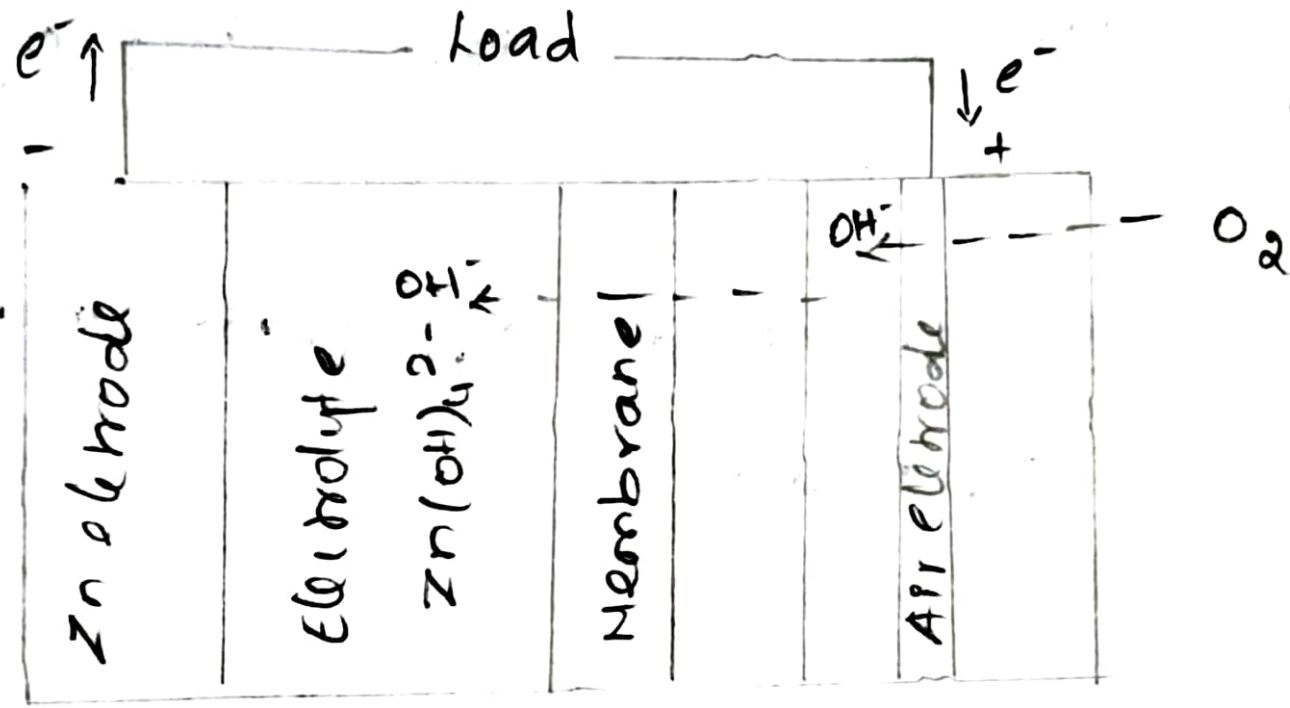 e⁻
Load
e⁻
-
+
OH⁻
O₂
OH⁻
Zn eletrode
Eletrolyte
Zn(OH)₄²⁻
Membrane
Air eletrode